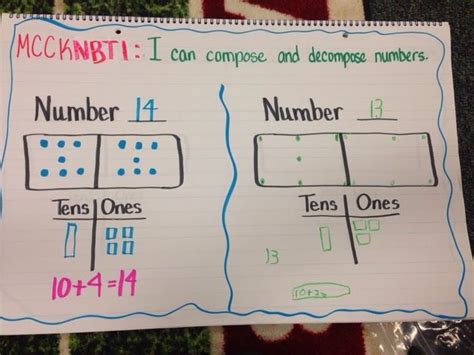 MCCKNBT1: I can compose and decompose numbers.
Number 14
Tens Ones
10+4=14
Number 13
Tens Ones
13